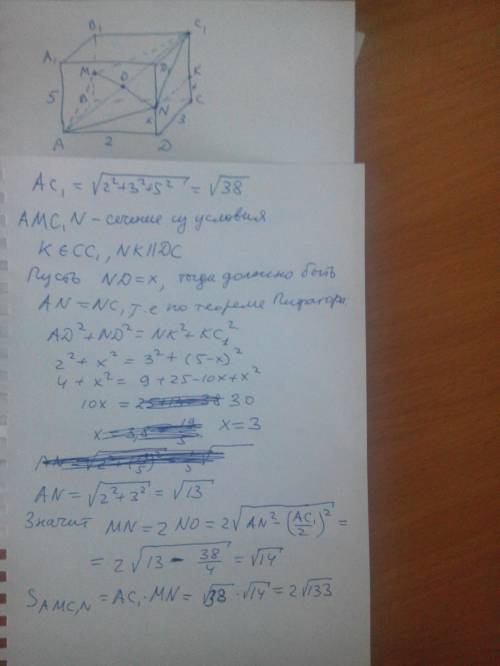 B₁ C₁
A₁ D₁
M O K
5 B N C
x 3
A 2 D
AC₁ = √(2²+3²+5²) = √38
AMC₁N – сечение из условия
K ∈ CC₁, NK ∥ DC
Пусть ND = x, тогда должно быть
AN = NC₁ т.е по теореме Пифагора
AD² + ND² = NK² + KC₁²
2² + x² = 3² + (5-x)²
4 + x² = 9 + 25 - 10x + x²
10x = 30
x = 3
AN = √(2²+3²) = √13
Значит MN = 2 NO = 2√(AN² - (AC₁/2)²) =
= 2√(13 - 38/4) = √14
S AMC₁N = AC₁ · MN = √38 · √14 = 2√133